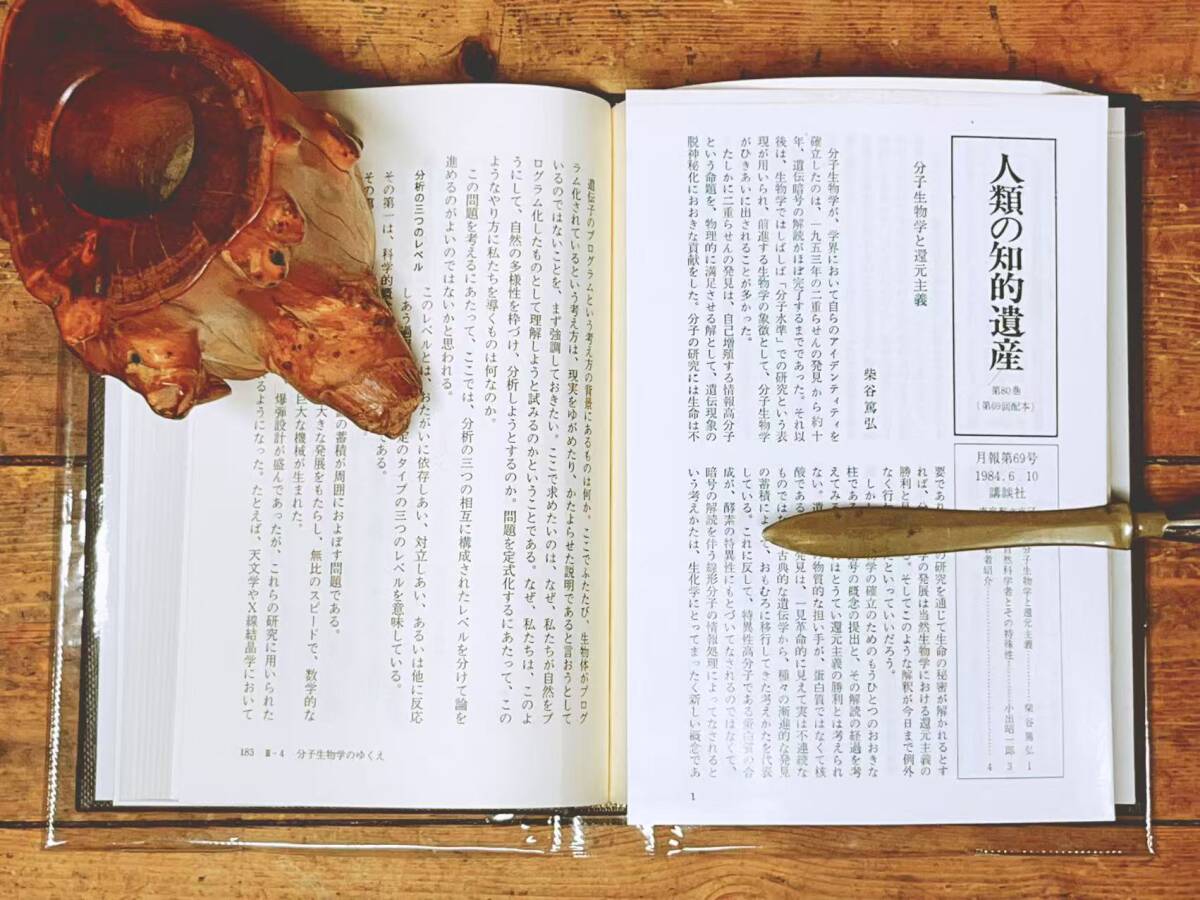 人類の知的遺産
第80巻
(第69回配本)
月報第69号
1984.6.10
講談社
分子生物学と還元主義……柴谷篤弘 1
自然科学者とその特殊性……小出昭一郎 3
者紹介…… 4
分子生物学と還元主義
柴谷篤弘
分子生物学が、学界において自らのアイデンティティを
確立したのは、一九五三年の二重らせんの発見から約十
年、遺伝暗号の解読がほぼ完了するまでであった。それ以
後は、生物学ではしばしば「分子水準」での研究という表
現が用いられ、前進する生物学の象徴として、分子生物学
がひきあいに出されることが多かった。
たしかに二重らせんの発見は、自己増殖する情報高分子
という命題を、物理的に満足させる解として、遺伝現象の
脱神秘化におおきな貢献をした。分子の研究には生命は不
要であり の研究を通じて生命の秘密が解かれるとす
れば、分 学の発展は当然生物学における還元主義の
勝利と見 る。そしてこのような解釈が今日まで例外
なく行な たといっていいだろう。
しかし 学の確立のためのもうひとつのおおきな
柱であ 号の概念の提出と、その解読の経過を考
えてみる はとうてい還元主義の勝利とは考えられ
ない。遺 の物質的な担い手が、蛋白質ではなくて核
酸である 発見は、一見革命的に見えて実は不連続な
ものでは 古典的な遺伝学から、種々の漸進的な発見
の蓄積によ 、おもむろに移行してきた考えかたを代表
している。これに反して、特異性高分子である蛋白質の合
成が、酵素の特異性にもとづいてなされるのではなくて、
暗号の解読を伴う線形分子の情報処理によってなされると
いう考えかたは、生化学にとってまったく新しい概念であ
1
遺伝子のプログラムという考え方の背景にあるものは何か。ここでふたたび、生物体がプログ
ラム化されているという考え方は、現実をゆがめたり、かたよらせた説明であると言おうとして
いるのではないことを、まず強調しておきたい。ここで求めたいのは、なぜ、私たちが自然をプ
ログラム化したものとして理解しようと試みるのかということである。なぜ、私たちは、このよ
うにして、自然の多様性を枠づけ、分析しようとするのか。問題を定式化するにあたって、この
ようなやり方に私たちを導くものは何なのか。
この問題を考えるにあたって、ここでは、分析の三つの相互に構成されたレベルを分けて論を
進めるのがよいのではないかと思われる。
分析の三つのレベル
このレベルとは、おたがいに依存しあい、対立しあい、あるいは他に反応
しあう 定のタイプの三つのレベルを意味している。
その第一は、科学的 である。
その
の蓄積が周囲におよぼす問題である。
大きな発展をもたらし、無比のスピードで、数学的な
巨大な機械が生まれた。
爆弾設計が盛んであったが、これらの研究に用いられた
るようになった。たとえば、天文学やX線結晶学において
183 Ⅱ-4 分子生物学のゆくえ